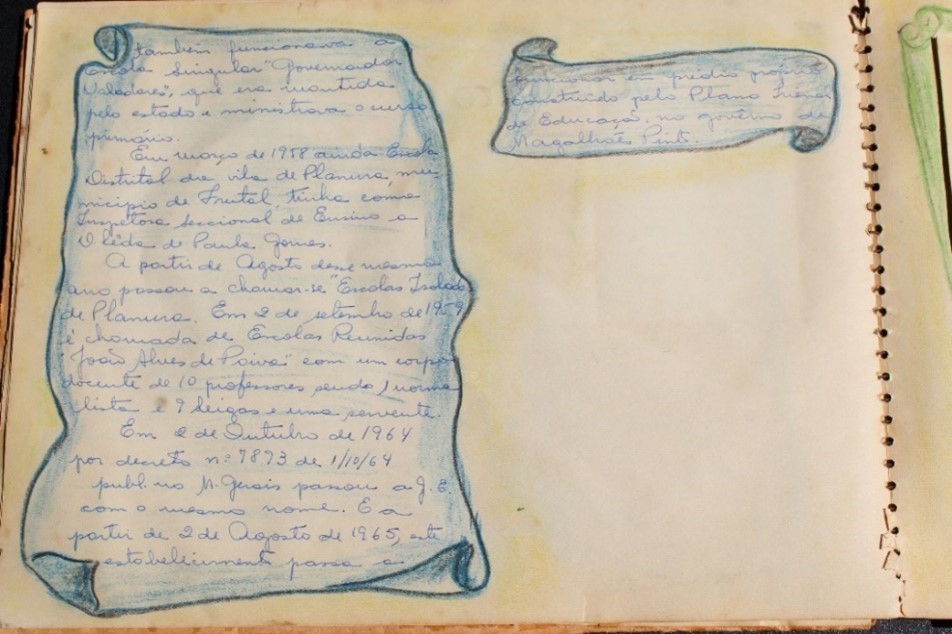 também funcionava a
Escola Singular "Governador
Valadares", que era mantida
pelo estado e ministrava o curso
primário.
Em março de 1958 ainda Escola
Distrital da vila de Planura, mu-
nicípio de Frutal, tinha como
Inspetora Seccional de Ensino a
de Paula Gomes.
A partir de Agosto desse mesmo
ano passou a chamar-se "Escolas Isoladas
de Planura. Em 2 de setembro de 1959
é chamada de Escolas Reunidas
"João Alves de Paiva" com um corpo
docente de 10 professores sendo 1 norma
lista e 9 leigas e uma servente.
Em 2 de Outubro de 1964
por decreto nº 7873 de 1/10/64
publ. no M. Gerais passou a G. E.
com o mesmo nome. E a
partir de 2 de Agosto de 1965, este
estabelecimento passa a
funcionar em prédio próprio
construído pelo Plano Trienal
de Educaçã, no govêrno de
Magalhães Pinto.